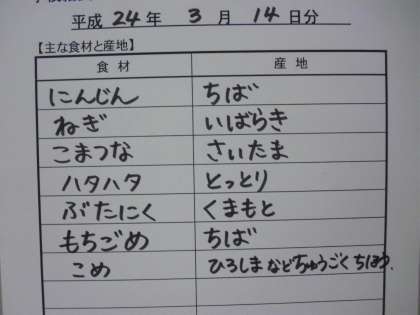 平成 24 年 3 月 14 日分
【主な食材と産地】
食材 産地
にんじん ちば
ねぎ いばらき
こまつな さいたま
ハタハタ とっとり
ぶたにく くまもと
もちごめ ちば
こめ ひろしまなどちゅうごくちほう.